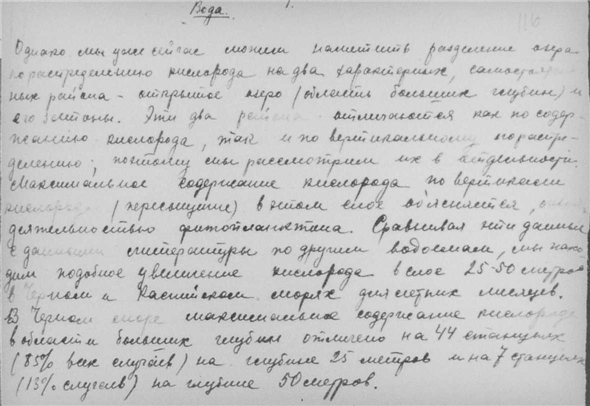 Вода. 1.
116
Однако мы уже сейчас можем наметить разделение озера
по распределению кислорода на два характерных, самостоятель
ных района - открытое озеро (область больших глубин) и
его заливы. Эти два района отличаются как по содер-
жанию кислорода, так и по вертикальному пораспре-
делению; поэтому мы рассмотрим их в отдельности.
Максимальное содержание кислорода по вертикали
кислорода (пересыщение) в этом слое объясняется,
деятельностью фитопланктона. Сравнивая эти данные
с данными литературы по другим водоемам, мы нахо-
дим подобное увеличение кислорода в слое 25-50 метров
в Черном и Каспийском морях для летних месяцев.
В Черном море максимальное содержание кислорода
в области больших глубин отмечено на 44 станциях
(85% всех случаев) на глубине 25 метров и на 7 станциях
(13% случаев) на глубине 50 метров.